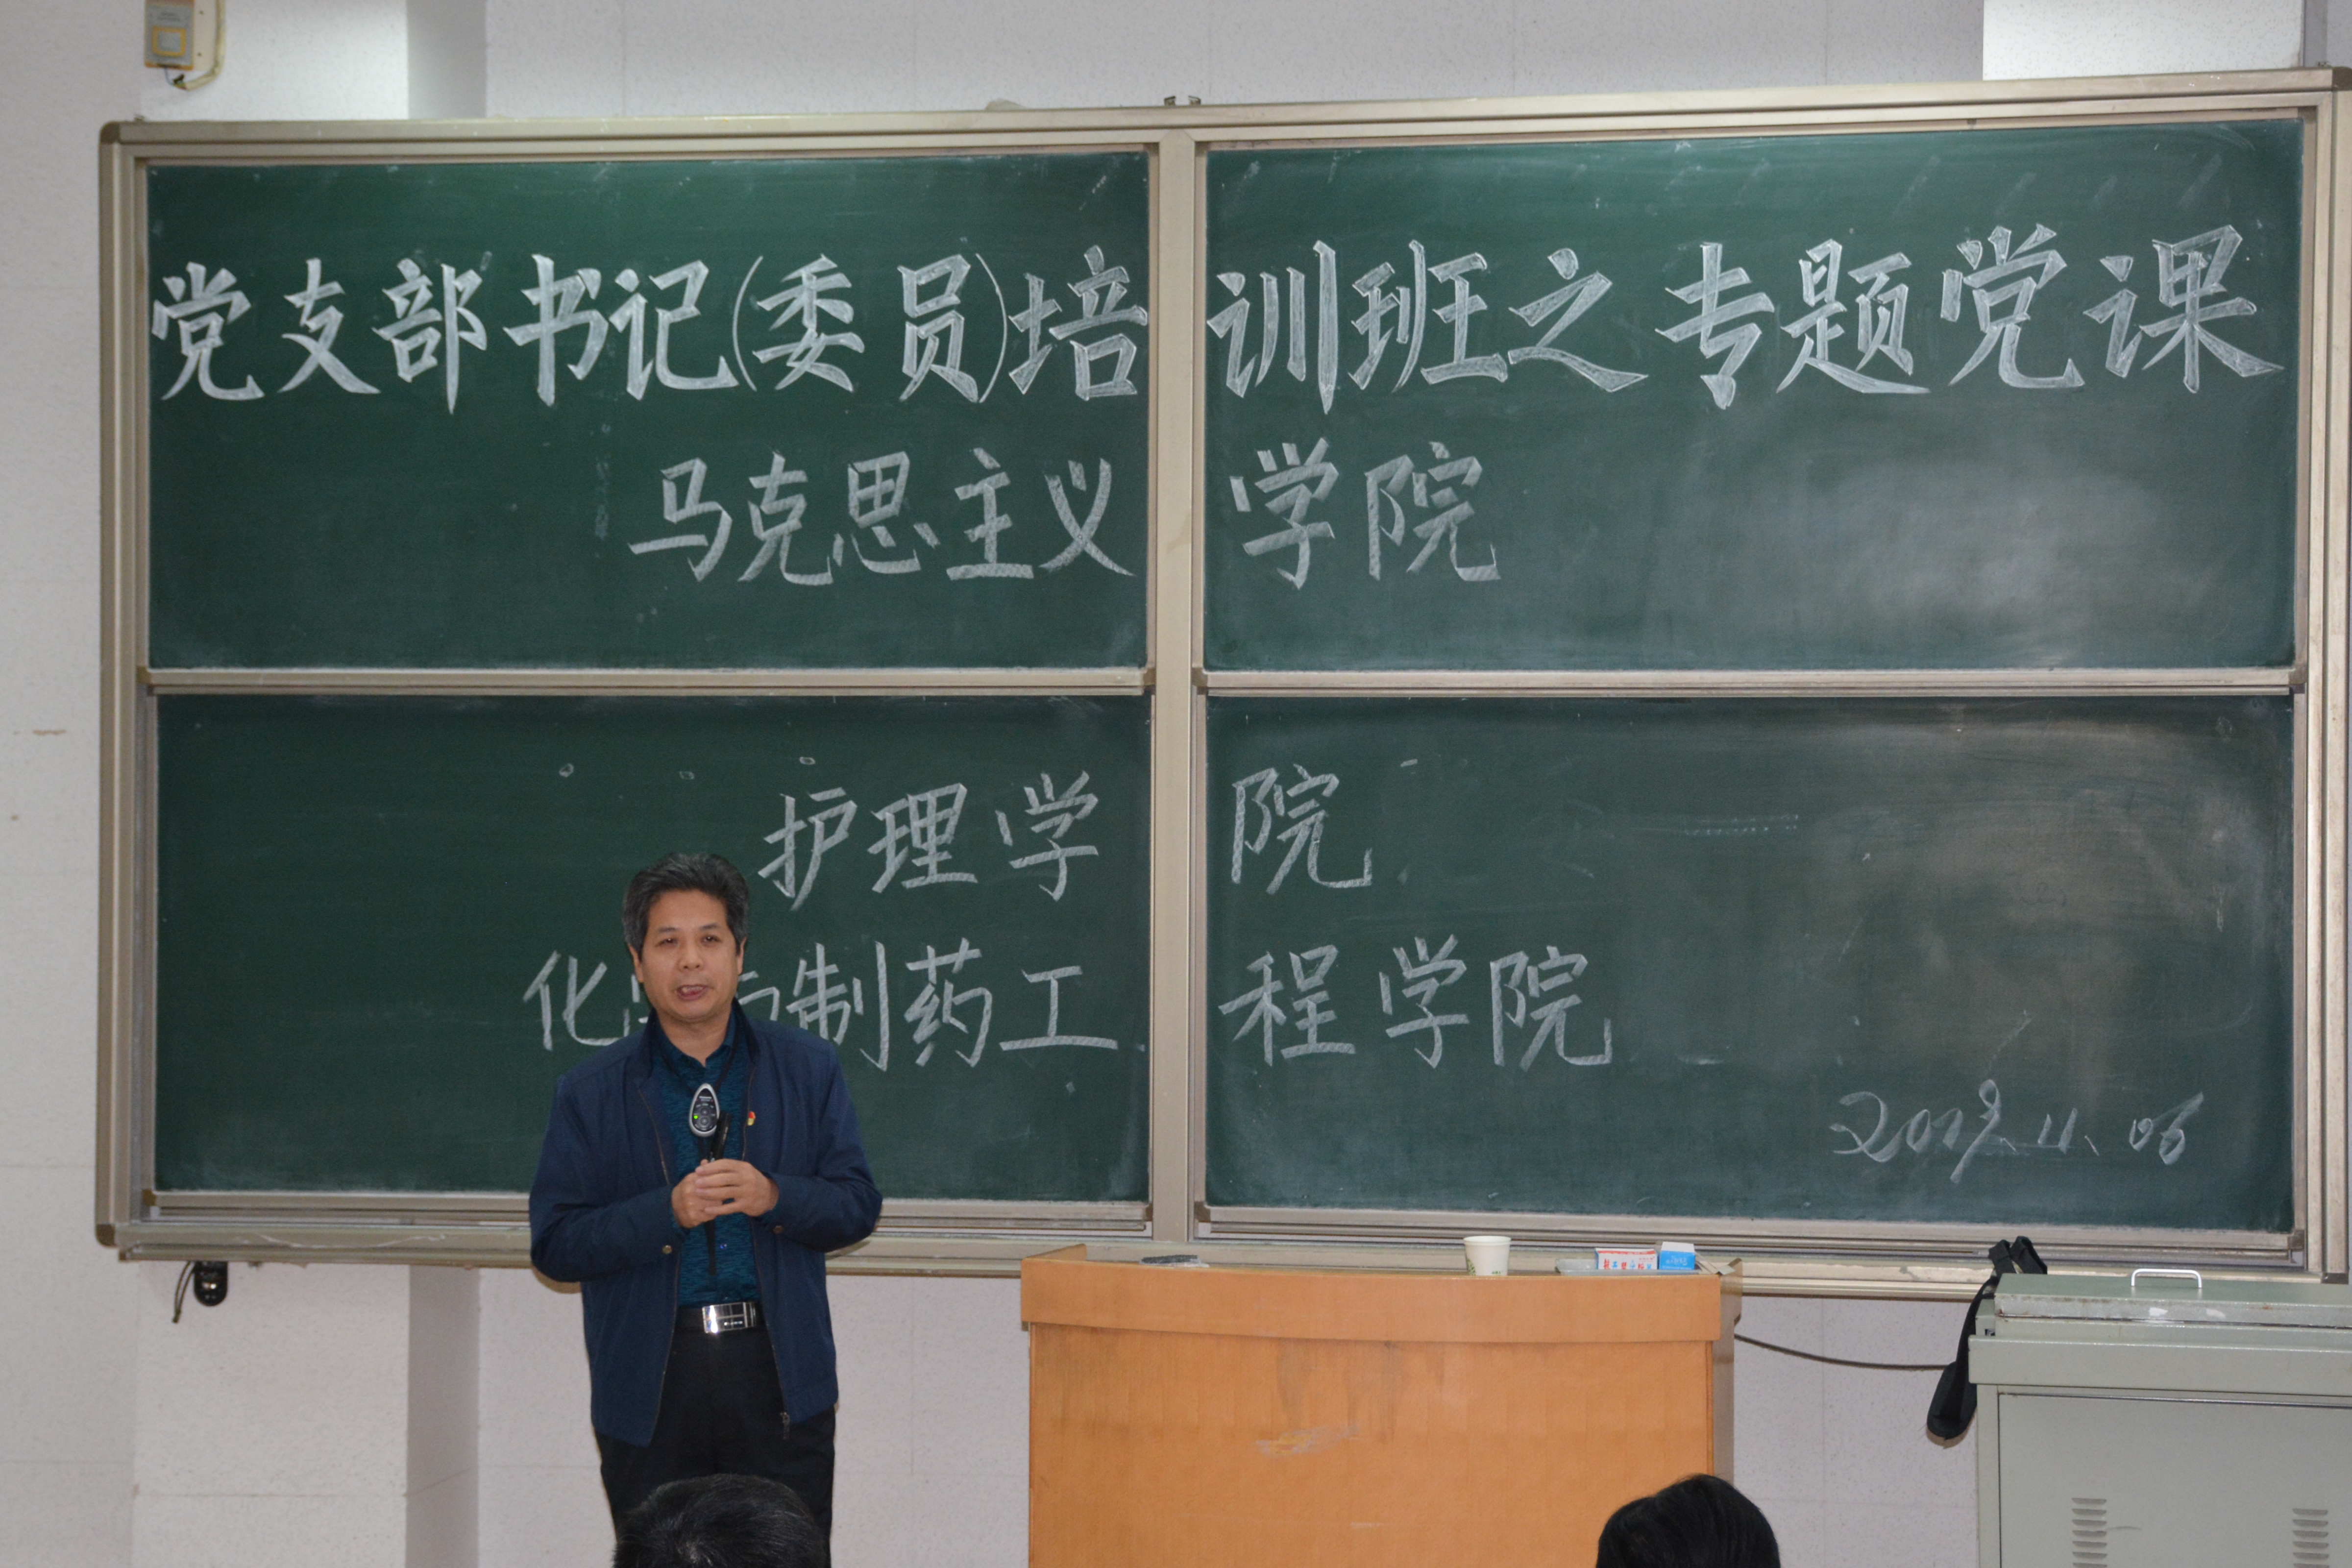 党支部书记(委员)培训班之专题党课
马克思主义学院
护理学院
化 制药工程学院
11.06